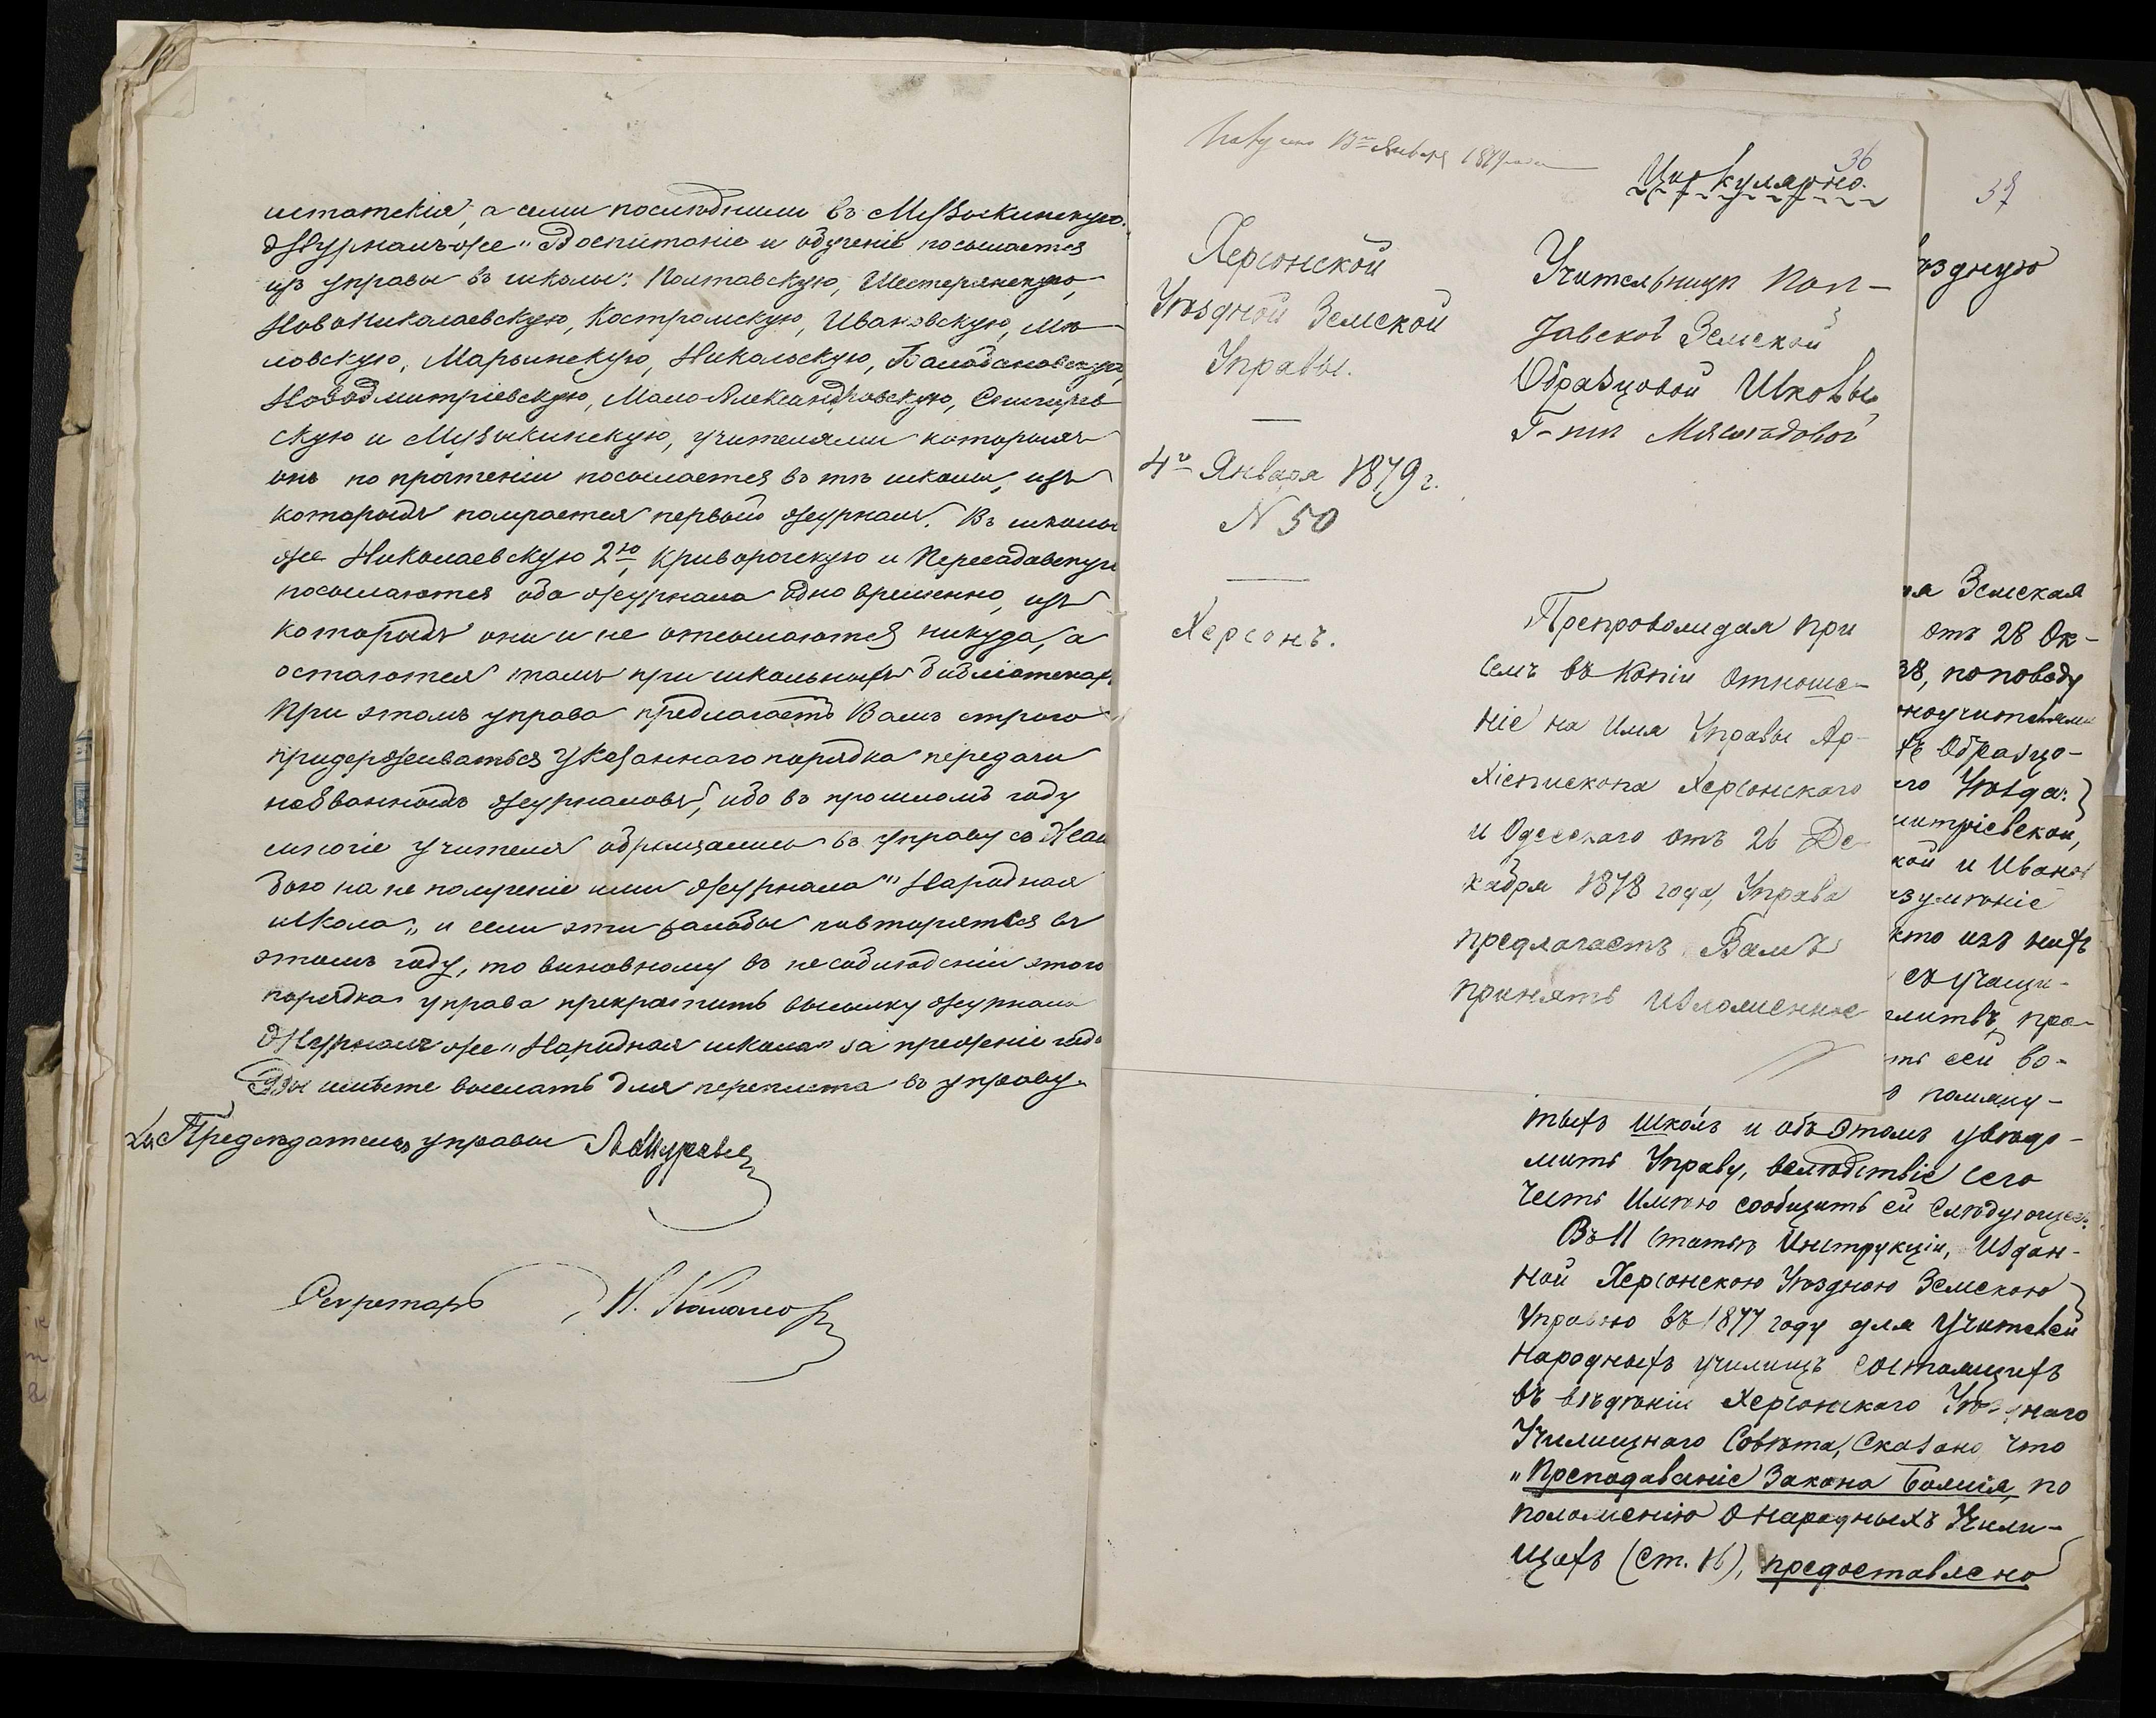 истатскія, а сими послѣдними въ Музыкинскую.
Журналъ же "Воспитаніе и обученіе посылается
изъ управы въ школы: Полтавскую, Шестернскую,
Новониколаевскую, Костромскую, Ивановскую, Мо-
ловскую, Марьинскую, Никольскую, Балабановскую,
Новодмитріевскую, Мало-Александровскую, Снигирев
скую и Музыкинскую, учителями которыхъ
онъ по прочтеніи посылается въ тѣ школы, изъ
которыхъ получается первый журналъ. Въ школы
же Николаевскую 2ю, Криворожскую и Пересадовскую
посылаются оба журнала одновременно, изъ
которыхъ они и не отсылаются никуда, а
остаются тамъ при школьныхъ библіотекахъ
При этомъ управа предлагаетъ Вамъ строго
придерживаться указаннаго порядка передачи
названныхъ журналовъ, ибо въ прошломъ году
многіе учителя обращались въ управу съ жало
бою на не полученіе ими журнала "Народная
школа", и если эти жалобы повторятся въ
этомъ году, то виновному въ несоблюденіи этого
порядка управа прекратитъ высылку журнала
Журналъ же "Народная школа" за прежніе года
Вы имѣете выслать для переплета въ управу.
За Предсѣдателя управы
Секретарь
1879 года
36
Циркулярно.
37
Херсонской
Уѣздной Земской
Управы.
4го Января 1879 г.
N 50
Херсонъ.
Учительницѣ Пол-
тавской Земской
Образцовой Школы
Г-жѣ Мясоѣдовой
Препровождая при
семъ въ копіи отноше-
ніе на имя Управы Ар-
хіепископа Херсонскаго
и Одесскаго отъ 26 Де-
кабря 1878 года, Управа
предлагаетъ Вамъ
принять изложенное
ѣздную
ая Земская
отъ 28 Ок-
38, по поводу
ноучителями
хъ Образцо-
го Уѣзда:
митріевской,
кой и Иванов
азумѣніе
кто изъ нихъ
съ учащи-
литвъ, про-
ть сей во-
о помяну-
тыхъ школъ и объ этомъ увѣдо-
мить Управу, вслѣдствіе сего
честь имѣю сообщить ей слѣдующее.
Въ 11 статьѣ Инструкціи, издан-
ной Херсонскою Уѣздною Земскою
Управою въ 1877 году для Учителей
народныхъ училищъ состоящихъ
въ вѣдѣніи Херсонскаго Уѣзднаго
Училищнаго Совѣта, сказано что
"Преподаваніе Закона Божія, по
положенію о народныхъ Учили-
щахъ (ст. 16), предоставлено